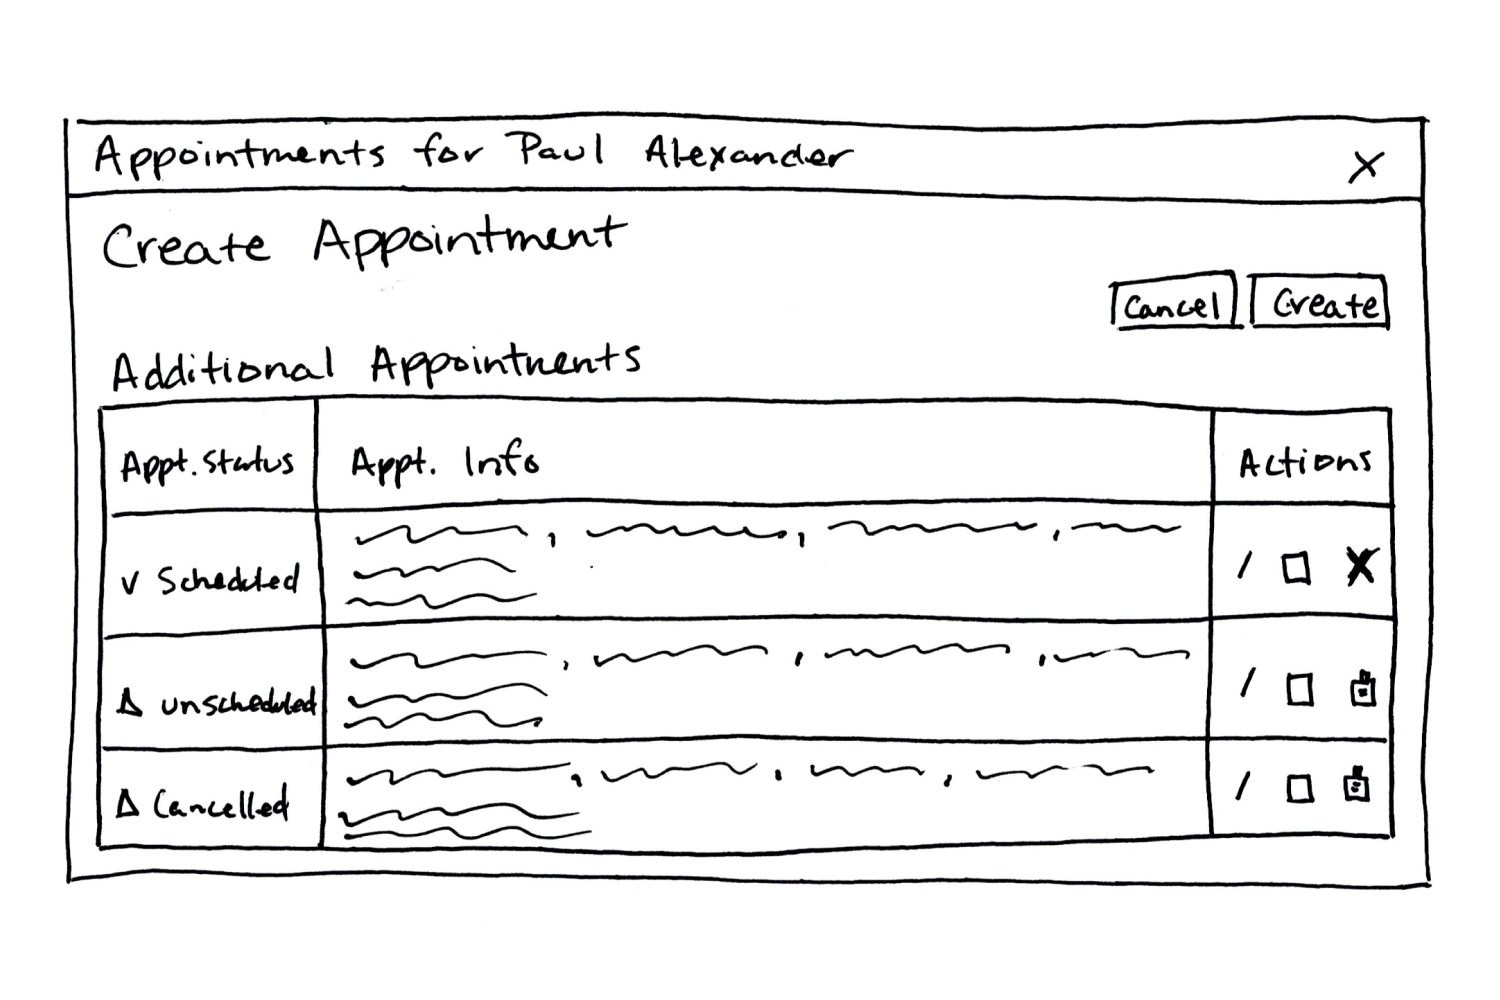 Appointments for Paul Alexander X
Create Appointment
Cancel Create
Additional Appointments
Appt. Status Appt. Info Actions
Scheduled
unscheduled
Cancelled